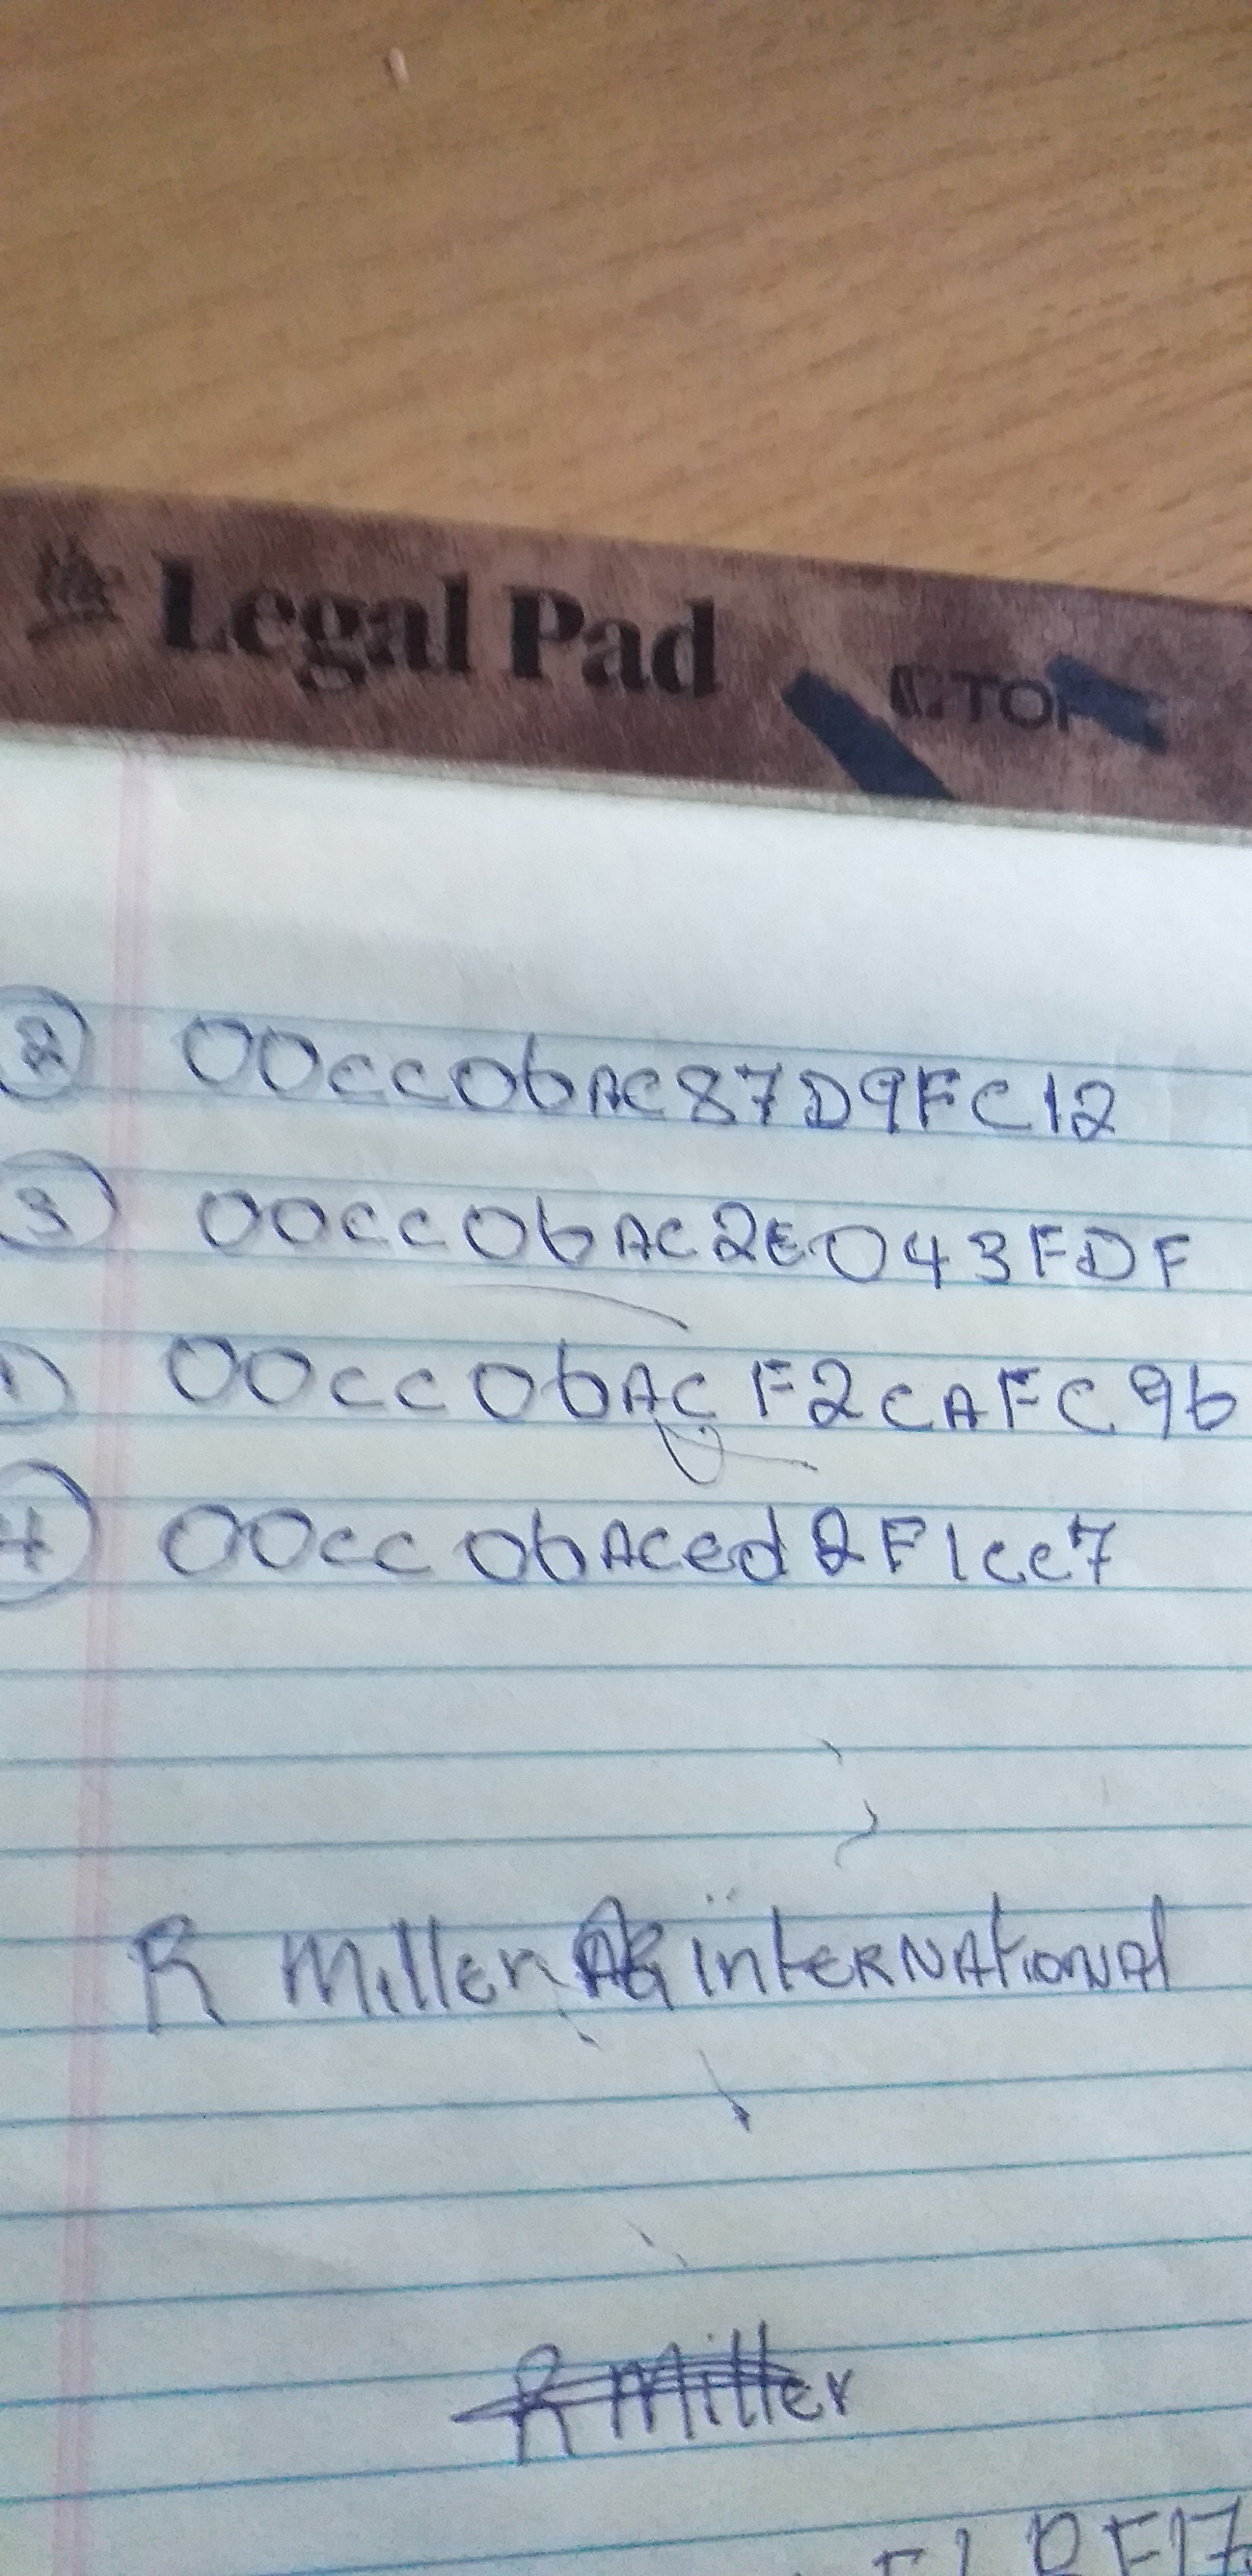 Legal Pad
② 00CC0bAC87D9FC12
③ 00CC0bAC2E043FDF
① 00CC0bACF2CAFC9b
④ 00CC0bACed2F1CC7
R Miller AG international
R Miller